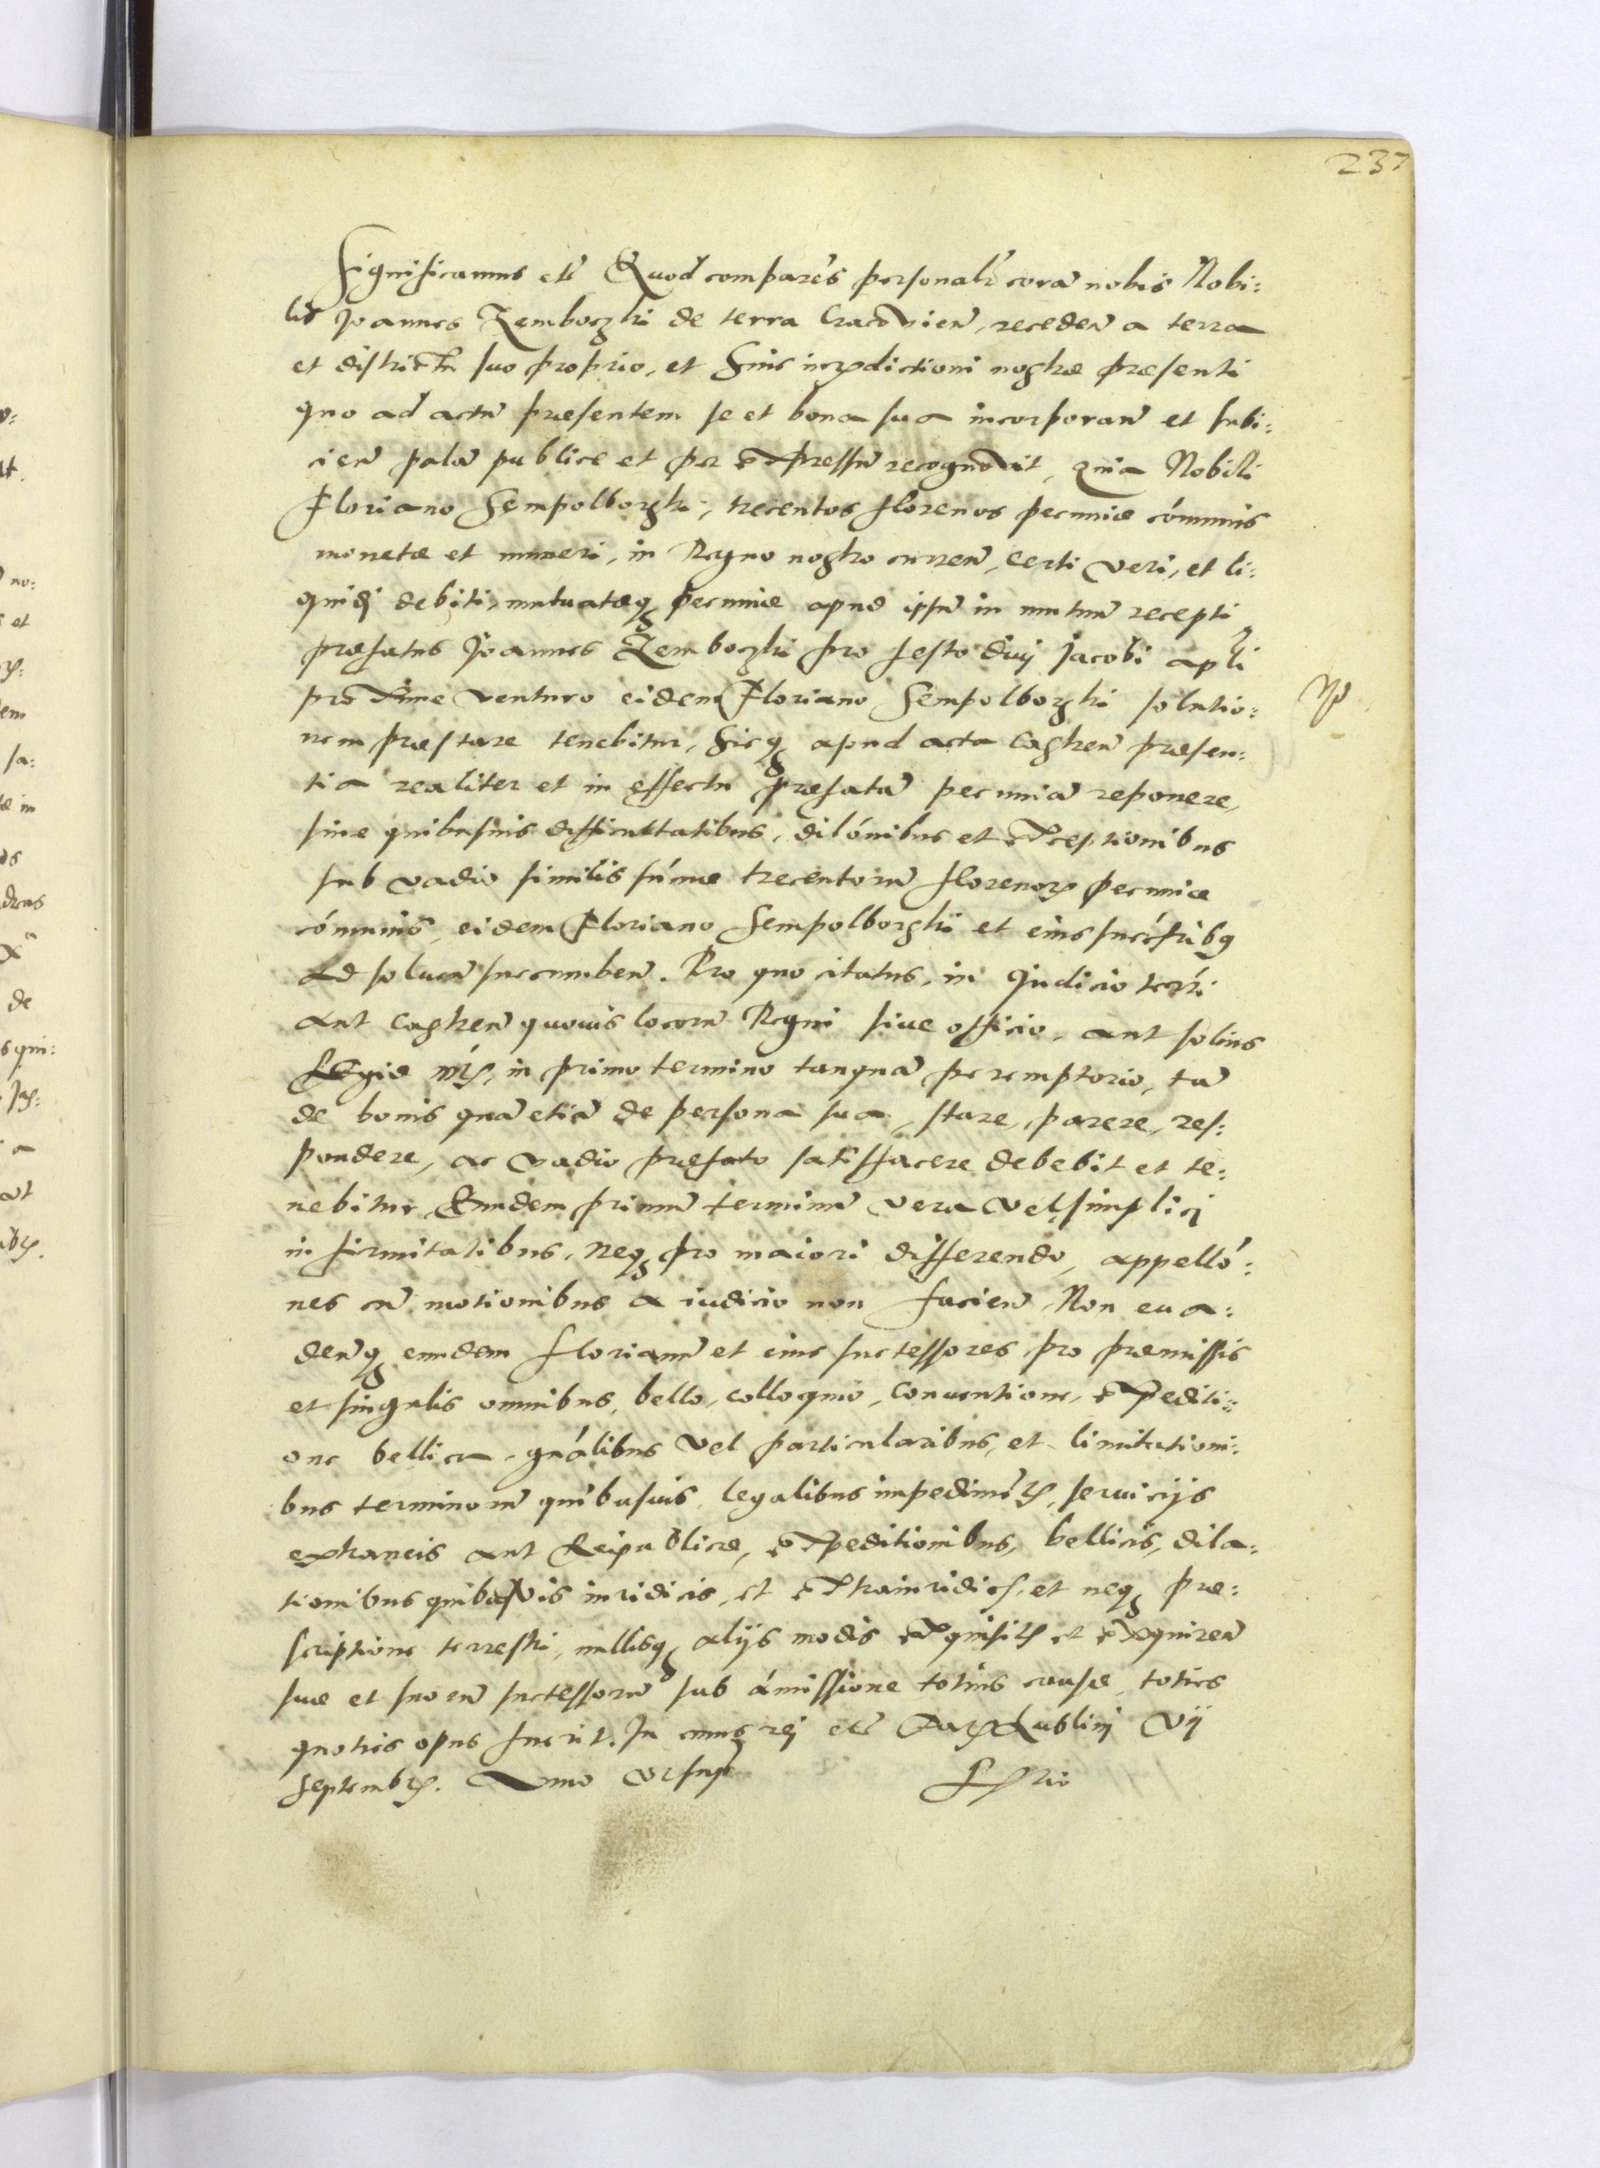 237
Significamus etc̃ Quod comparẽs personalr̃ corã nobis Nobi:
lis Joannes Zemboczki de terra Cracovień, recedeń a terra
et districtu suo proprio, et huic iurisdictioni nostræ præsenti
quo ad actũ præsentem se et bona sua incorporań et subi:
cień palã publice et per expressũ recognovit, quia Nobili
Floriano Sempolborski, trecentos florenos pecuniæ cómunis
monetæ et numeri, in Regno nostro curreń, certi veri, et li:
quidi debiti, mutuatæq pecuniæ apud ipsũ in mutuum recepti,
præfatus Joannes Zemboczki pro festo divi Jacobi apli
proxime venturo eidem Floriano Sempolborski solutio:
nem præstare tenebitur, hicq apud acta Castreń præsen:
tia realiter et in effectu præfatã pecuniã reponere,
sine quibusuis difficultatibus, dilónibus et exceptionibus
sub vadio similis súmæ trecentorũ florenorꝝ pecuniæ
cómunis, eidem Floriano Sempolborski et eius succrib9
ad solueń succumbeń. Pro quo citatus, in Judicio terri
aut Castreń quouis locorũ Regni siue officio, aut solius
Regiæ mtis, in primo termino tanquã peremptorio, tã
de bonis quã etiã de persona sua, stare, parere, res:
pondere, ac vadio præfato satisfacere debebit et te:
nebitur Eundem primũ terminũ vera vel simplici
infirmitatibus, neq pro maiori differendo, appelló:
nes cũ motionibus a iudicio non facień, Non eua:
deńq eundem Florianũ et eius successores pro præmissis
et singulis omnibus, bello, colloquio, Conuentione, expediti:
one bellica, gnálibus vel particularibus, et limitationi:
bus terminorũ quibusuis, legalibus impedimẽtis, seruicijs
extraneis aut Reipublicæ, expeditionibus, bellicis, dila:
tionibus quibusvis iuridicis, et extraiuridicis, et neq præ:
scriptione terrestri, nullisq alijs modis exquisitis et exquireń
suæ et suorũ successorũ sub ámissione totius causæ, toties
quoties opus fuerit. In cuius rei etc̃ Datꝝ Lublini vij
Septembris. Anno vt supr̃